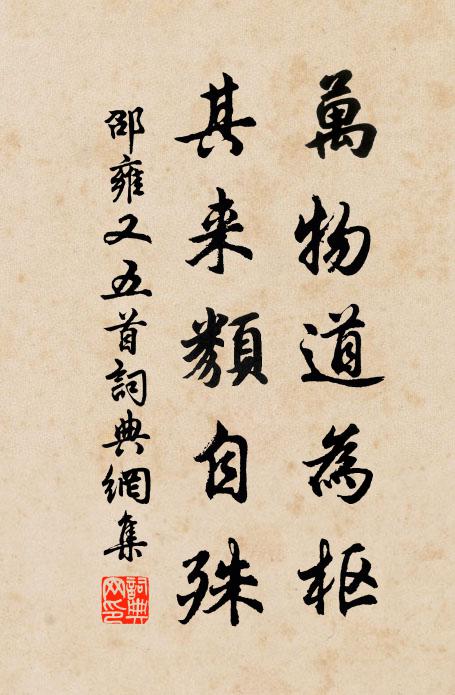 萬物道為枢
其来類自殊
邵雍又五首詞典網集
詞典網印